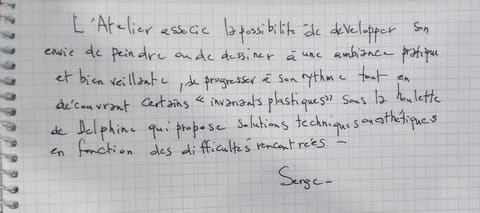 L'Atelier associe la possibilité de développer son
envie de peindre ou de dessiner à une ambiance pratique
et bienveillante, de progresser à son rythme tout en
découvrant certains "invariants plastiques" sous la houlette
de Delphine qui propose solutions techniques ou esthétiques
en fonction des difficultés rencontrées -
Serge -